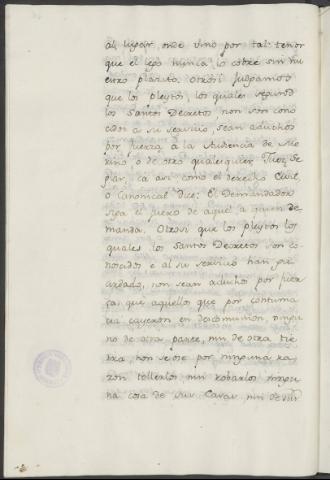 al lugar, onde vino por tal tenor
que el lego nunca lo cobre sin nu
estro placito. Otrosi Juzgamos
que los pleytos, los quales segund
los Santos Decretos, non son cono
cidos a su servicio, sean aduchos
por fuerza à la Audiencia de Me
rino ò de otro qualesquier Juez Se
glar, ca asi como el derecho Civil
o Canonical dice: El Demandador
siga el fuero de aquel a quien de
manda. Otrosi que los pleytos los
quales los Santos Decretos son co
noscidos e al su servicio han gu
ardado, non sean aduchos por fuer
za; que aquellos que por contuma
cia cayeron en descomunion, ningu
no de otra parte, nin de otra tie
rra non se ose por ninguna ra
zon tollerlos nin robarlos ningu
na cosa de sus Casas, nin de